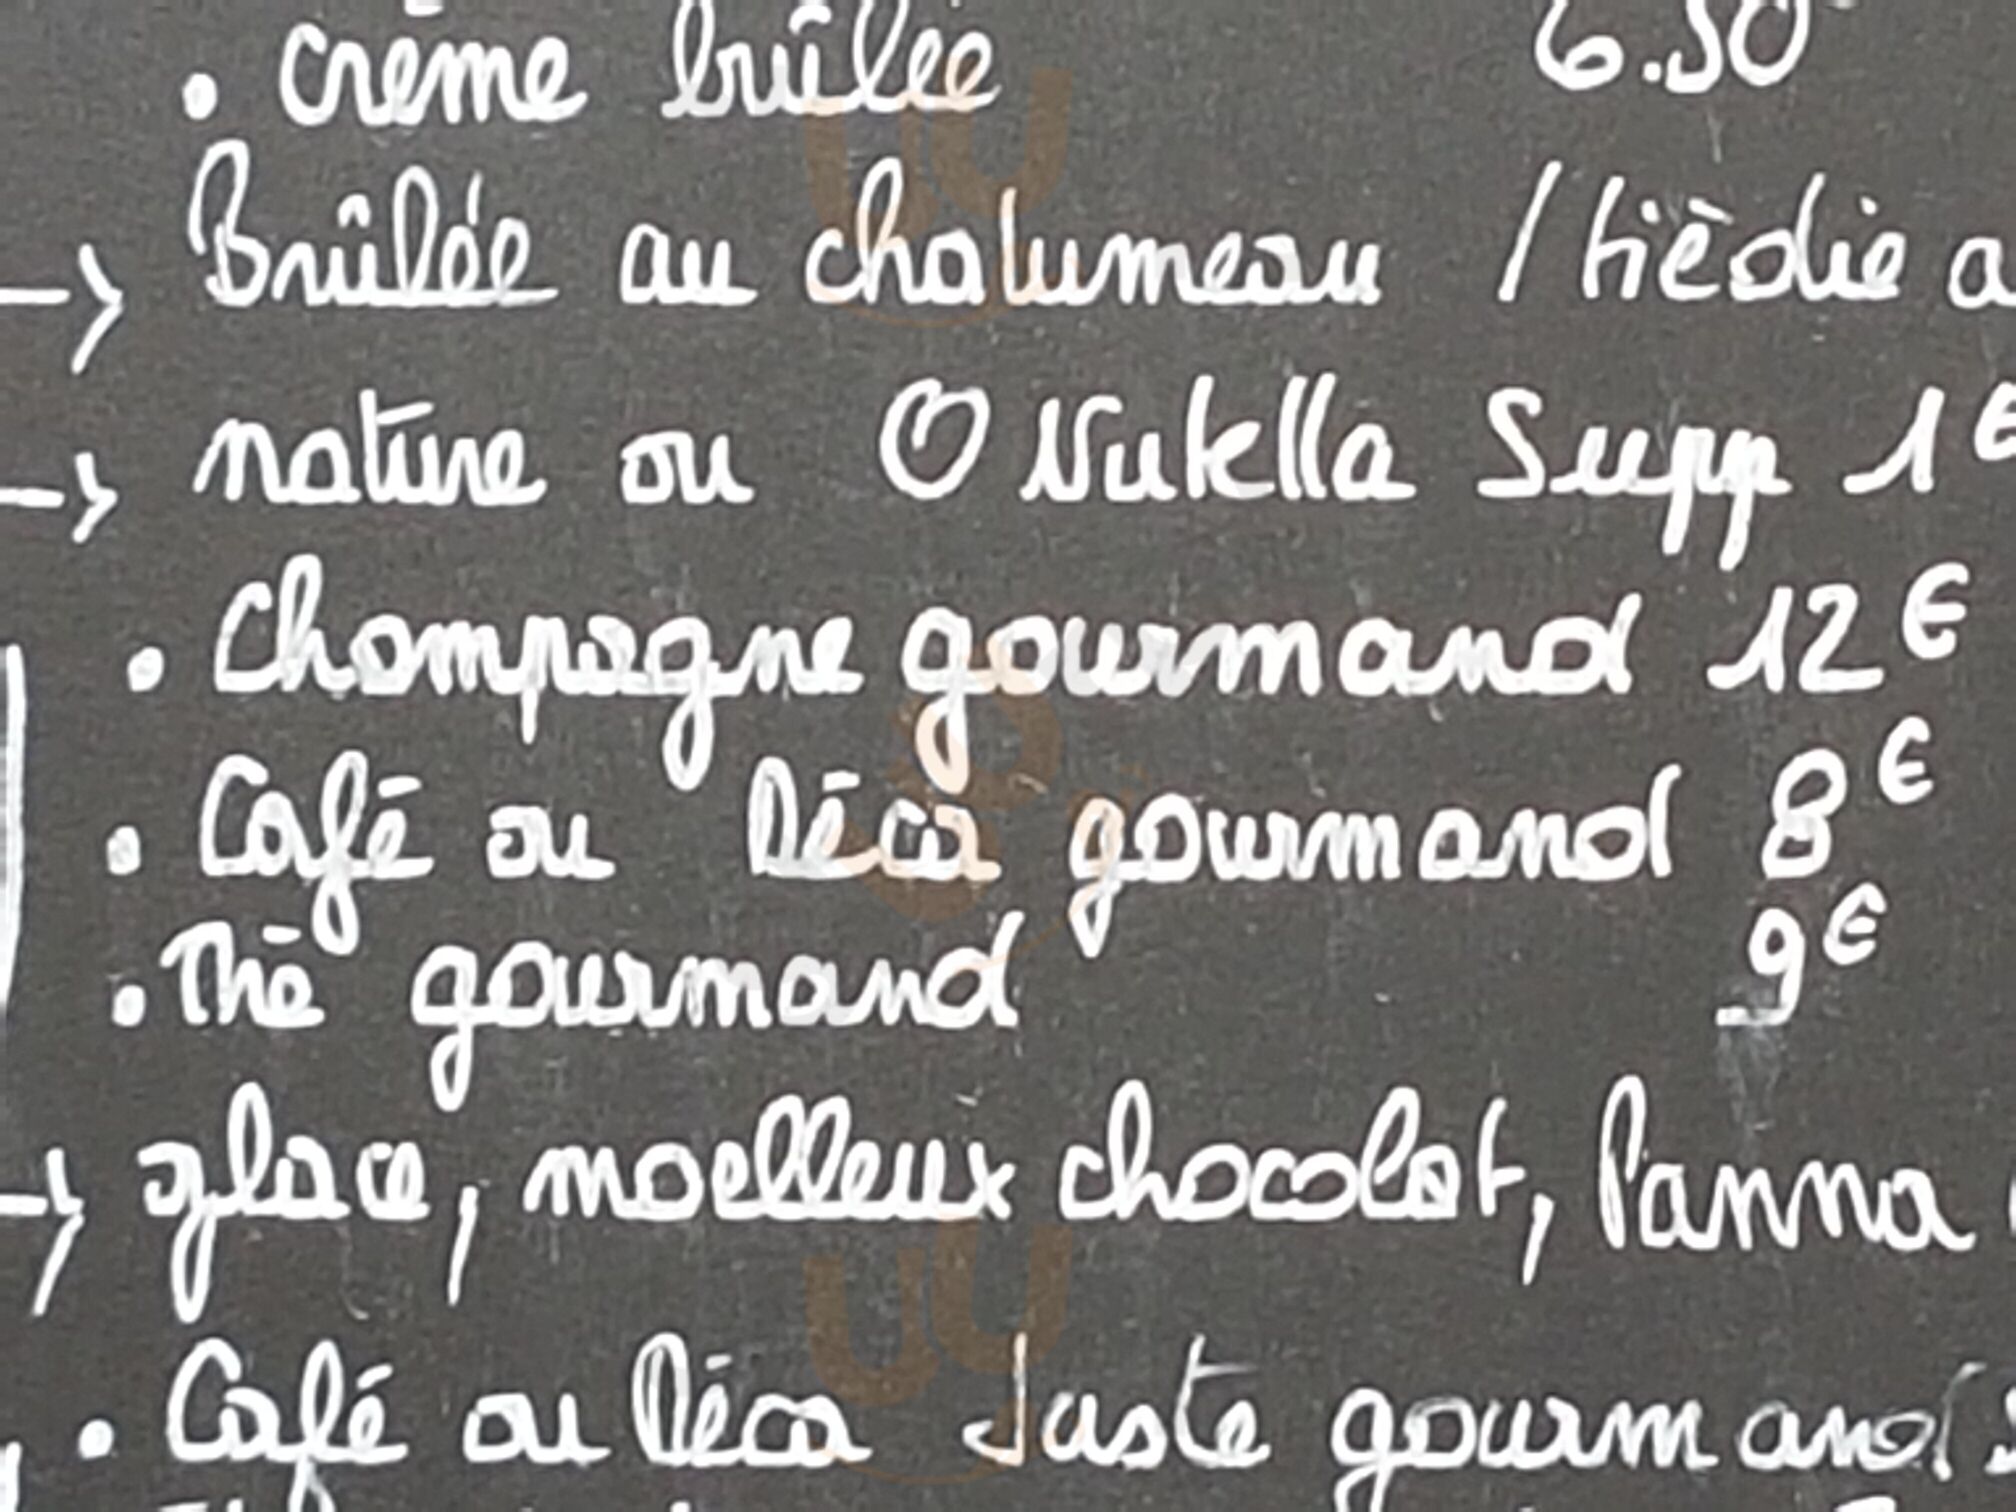 . crème brûlée 6.50
→ Brûlée au chalumeau / tièdie a
→ nature ou O Nutella Supp 1€
. Champagne gourmand 12€
. Café ou Déca gourmand 8€
. Thé gourmand 9€
→ glace, moelleux chocolat, Panna
. Café ou Déca Juste gourmand